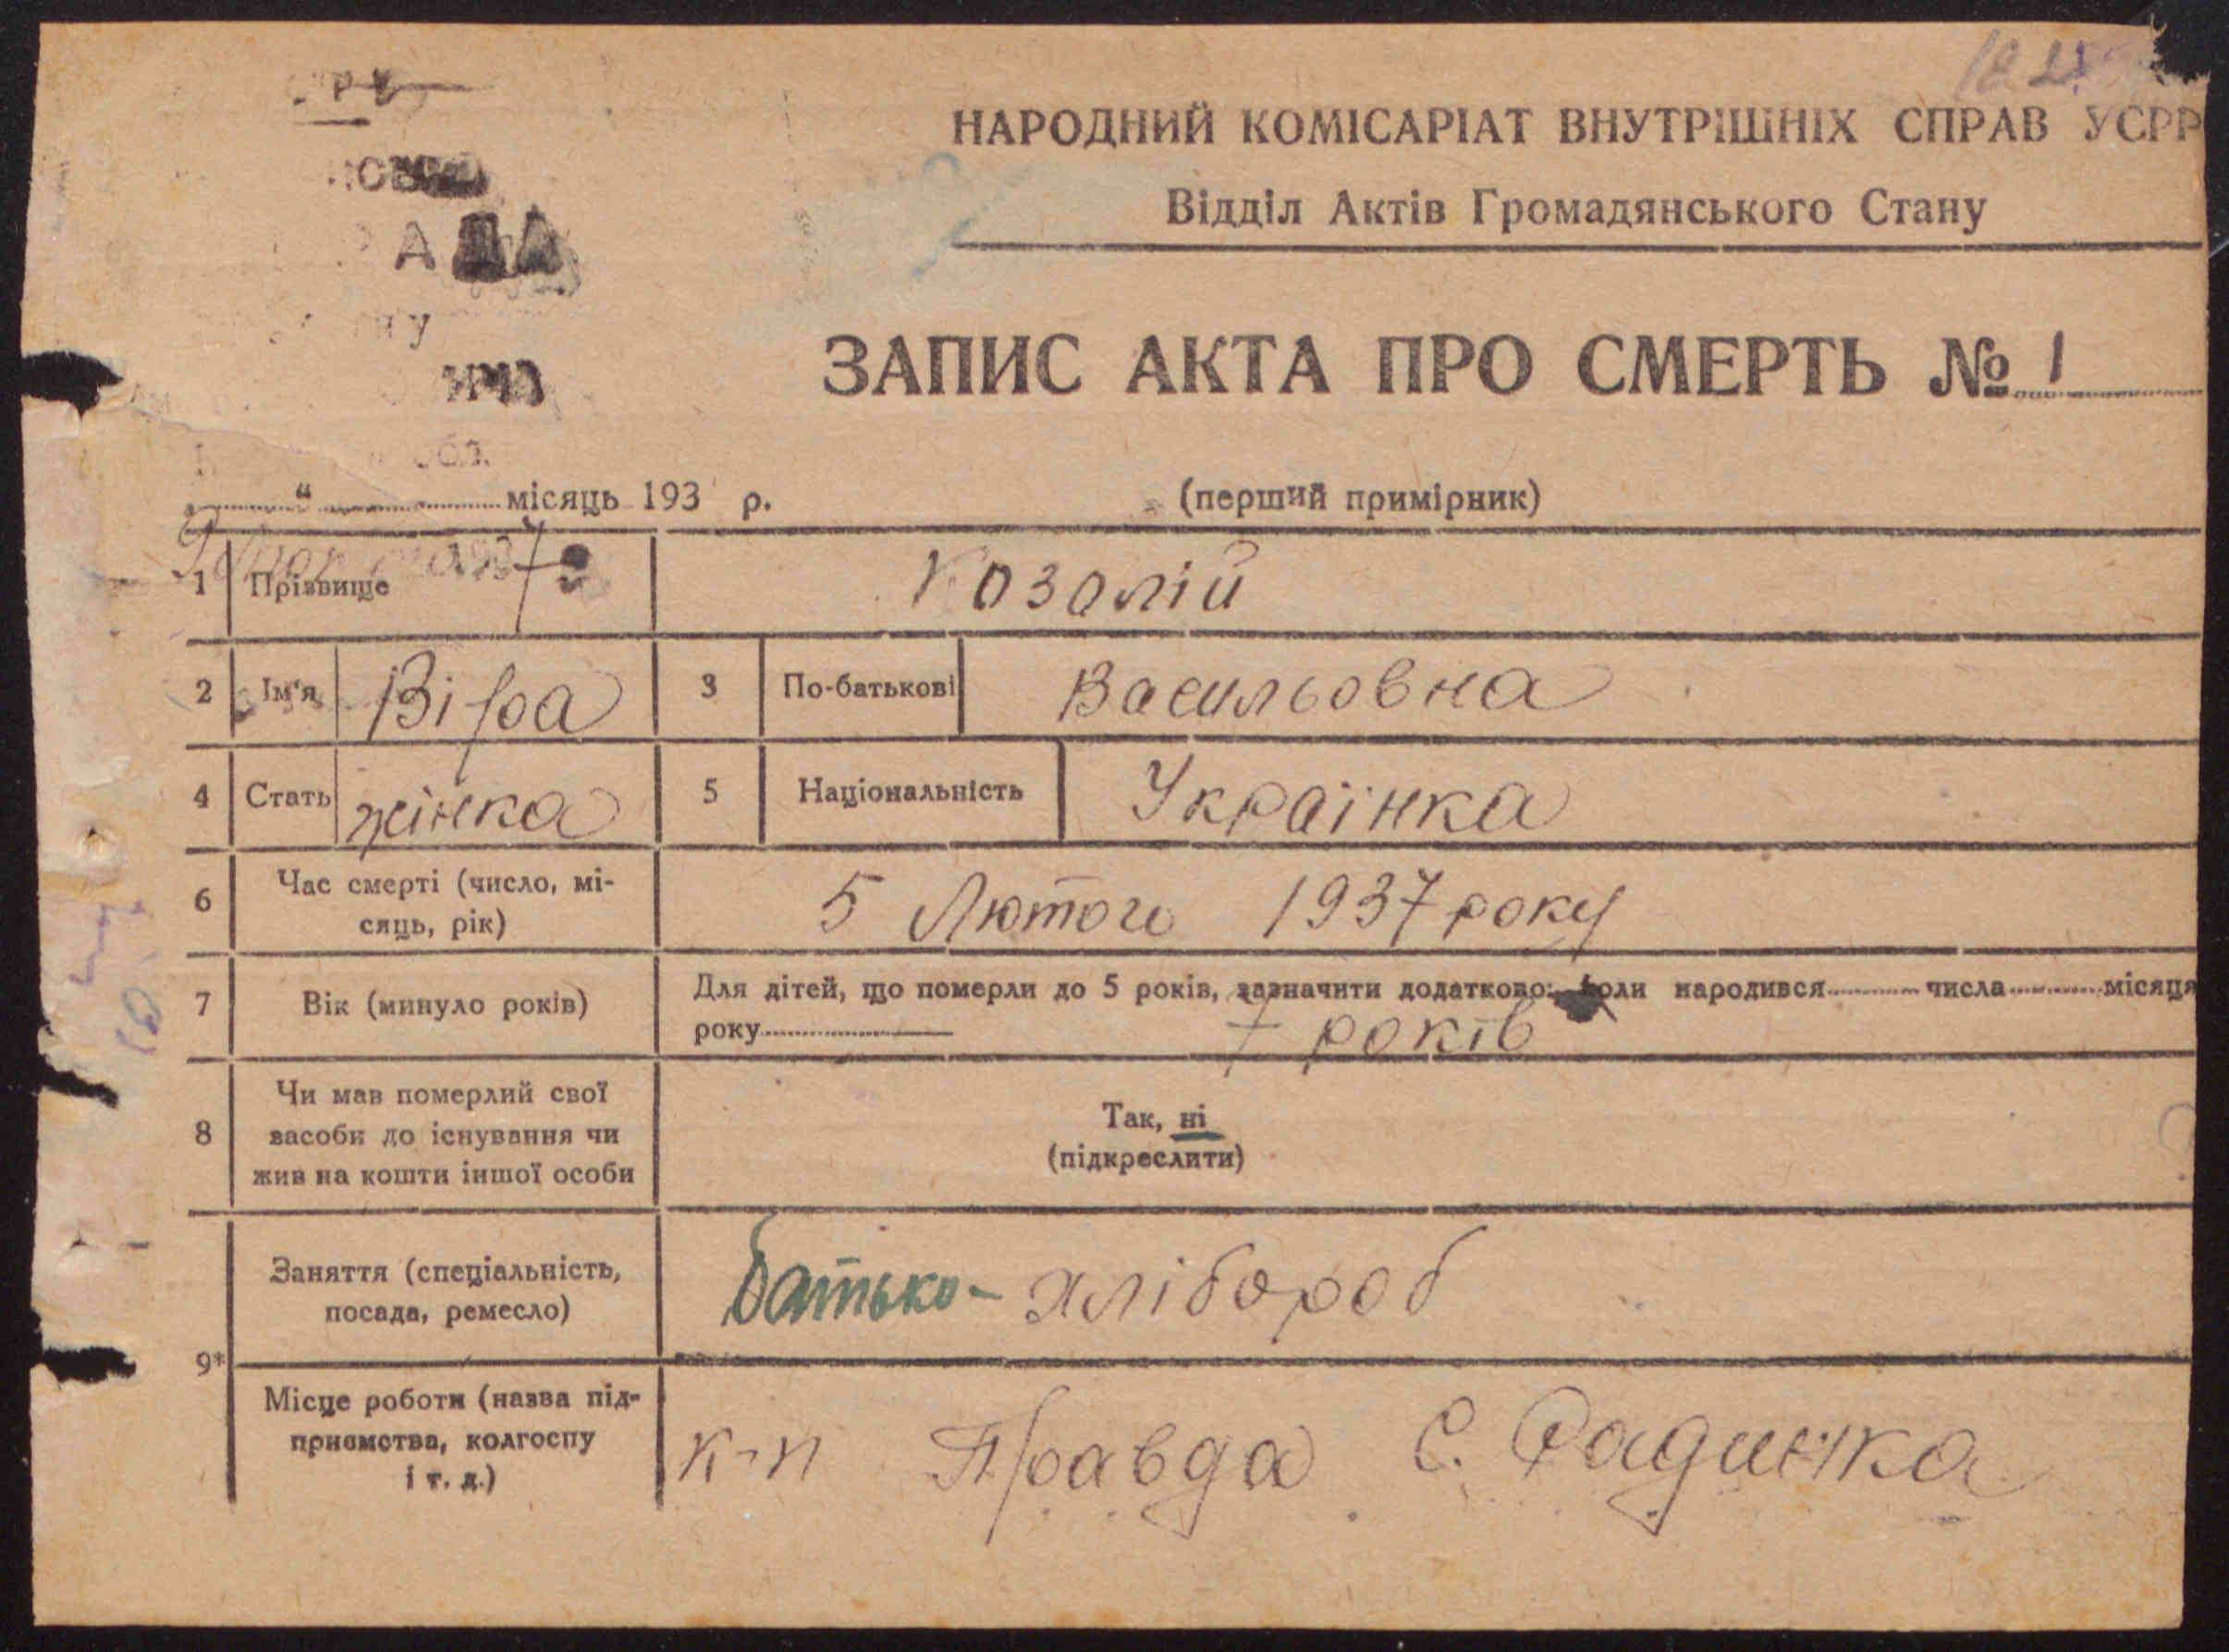 НАРОДНИЙ КОМІСАРІАТ ВНУТРІШНІХ СПРАВ УСРР
Відділ Актів Громадянського Стану
ЗАПИС АКТА ПРО СМЕРТЬ № 1
“ місяць 193 р.
(перший примірник)
1 Прізвище Козолій
2 Ім'я Віра 3 По-батькові Васильовна
4 Стать жінка 5 Національність Українка
6 Час смерті (число, мі-
сяць, рік) 5 Лютого 1937 року
7 Вік (минуло років) Для дітей, що померли до 5 років, зазначити додатково: коли народився числа місяця
року 7 років
8 Чи мав померлий свої
засоби до існування чи
жив на кошти іншої особи
Так, ні
(підкреслити)
9*
Заняття (спеціальність,
посада, ремесло) батько- хлібороб
Місце роботи (назва під-
приємства, колгоспу
і т. д.)
к-п Правда С. Радинка